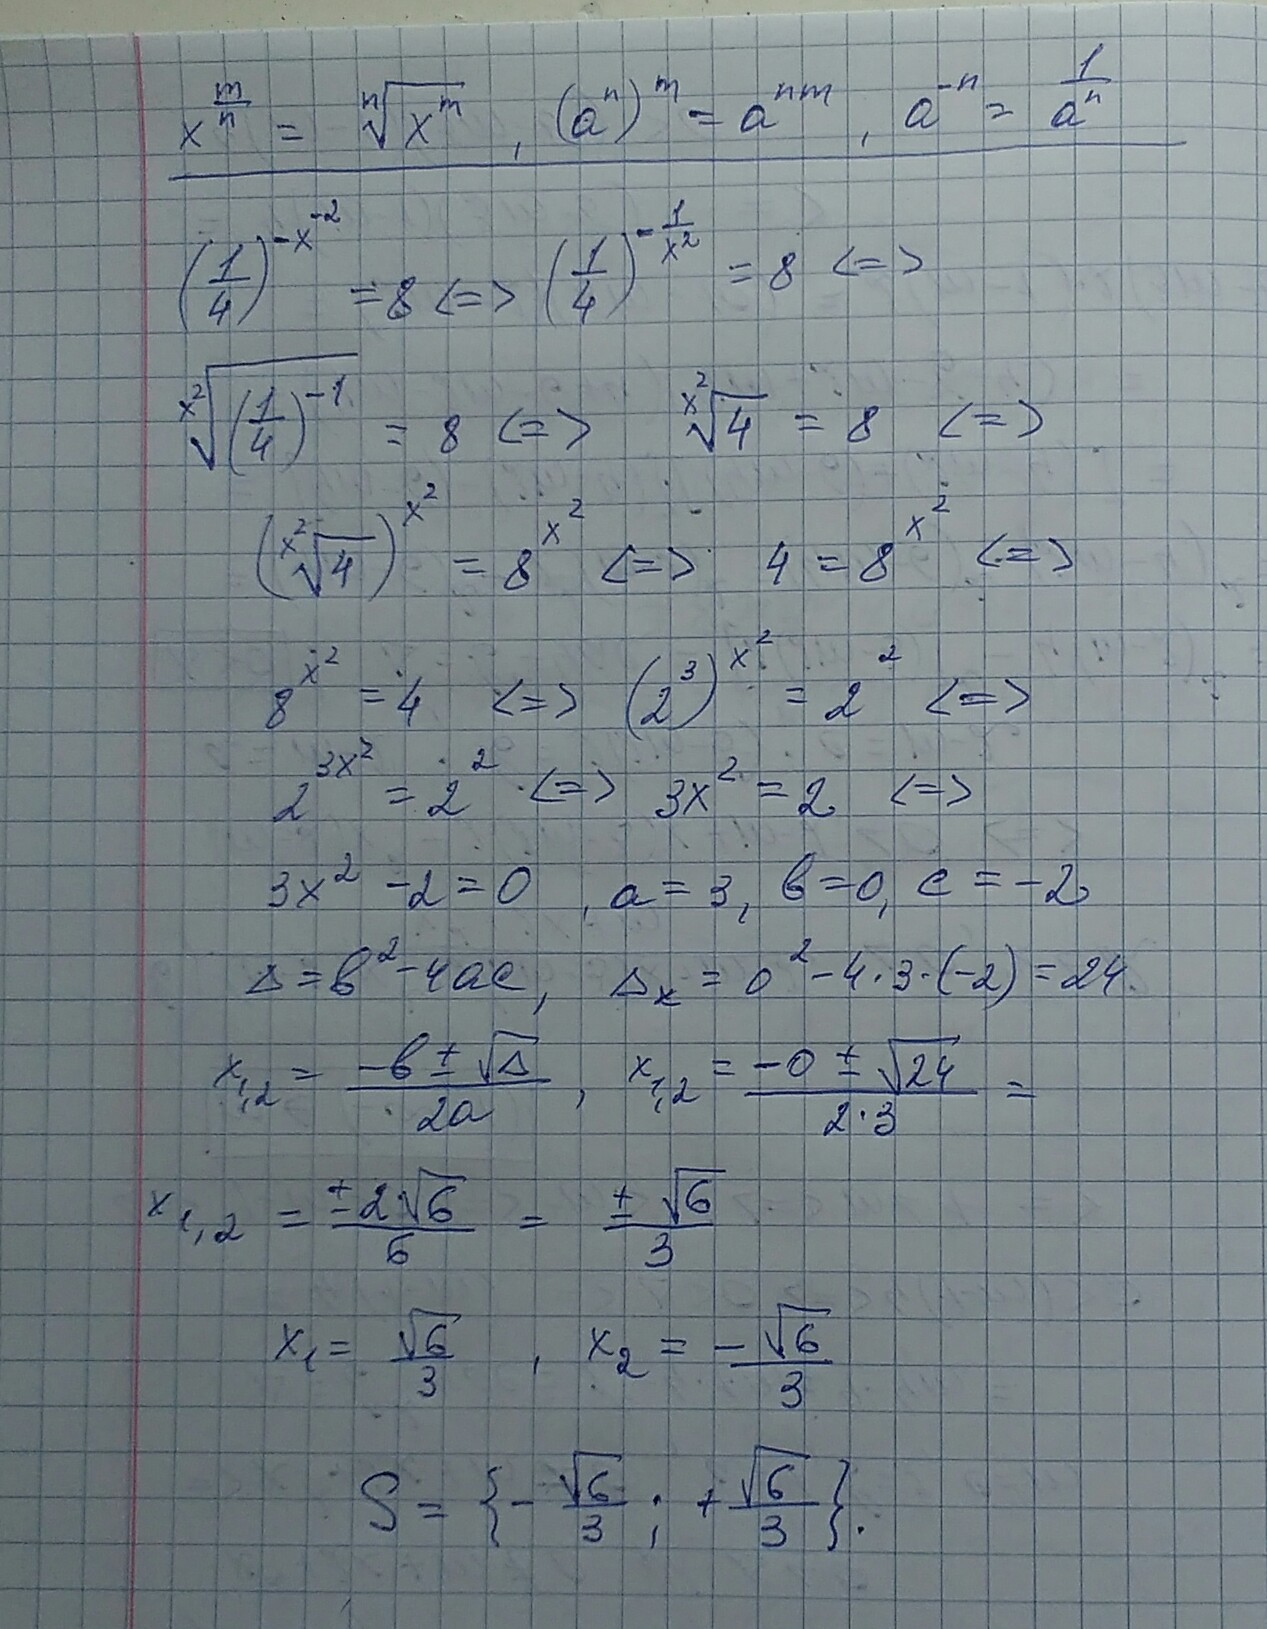 x^(m/n) = ⁿ√(x^m) , (a^n)^m = a^(nm) , a^(-n) = 1/a^n
(1/4)^(-x^(-2)) = 8 <=> (1/4)^(-1/x^2) = 8 <=>
x^2√((1/4)^(-1)) = 8 <=> x^2√4 = 8 <=>
(x^2√4)^(x^2) = 8^(x^2) <=> 4 = 8^(x^2) <=>
8^(x^2) = 4 <=> (2^3)^(x^2) = 2^2 <=>
2^(3x^2) = 2^2 <=> 3x^2 = 2 <=>
3x^2 - 2 = 0 , a = 3, b = 0, c = -2
Δ = b^2 - 4ac, Δx = 0^2 - 4·3·(-2) = 24.
x1,2 = (-b ± √Δ)/(2a) , x1,2 = (-0 ± √24)/(2·3) =
x1,2 = (±2√6)/6 = (±√6)/3
x1 = √6/3 , x2 = -√6/3
S = {-√6/3 ; +√6/3}.